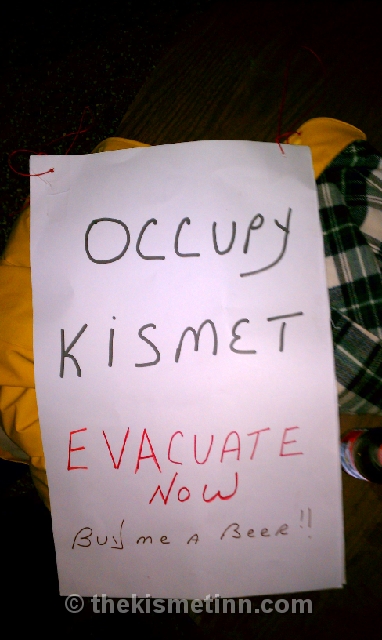 OCCUPY
KiSMET
EVACUATE
NOW
Buy me A Beer!!
© thekismetinn.com